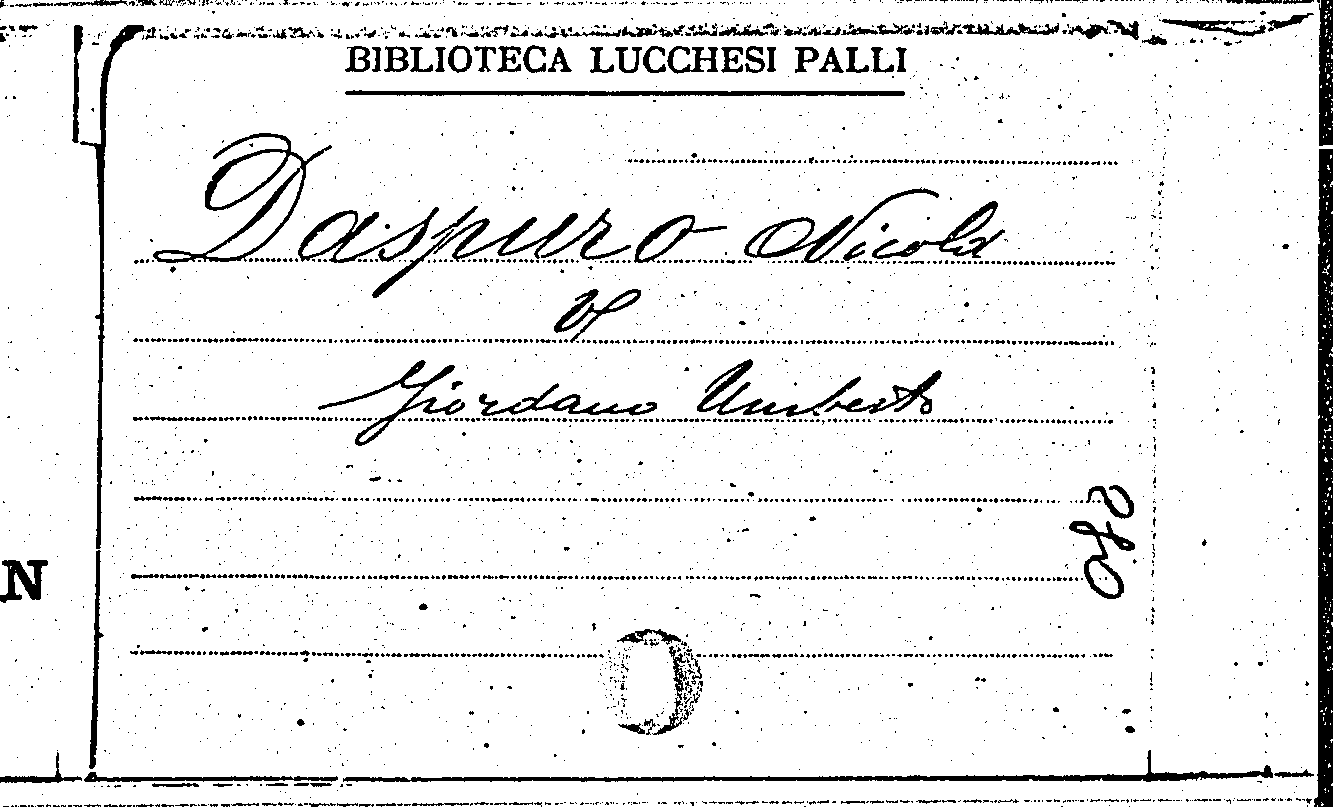 BIBLIOTECA LUCCHESI PALLI
Daspuro Nicola
V.
Giordano Umberto
N